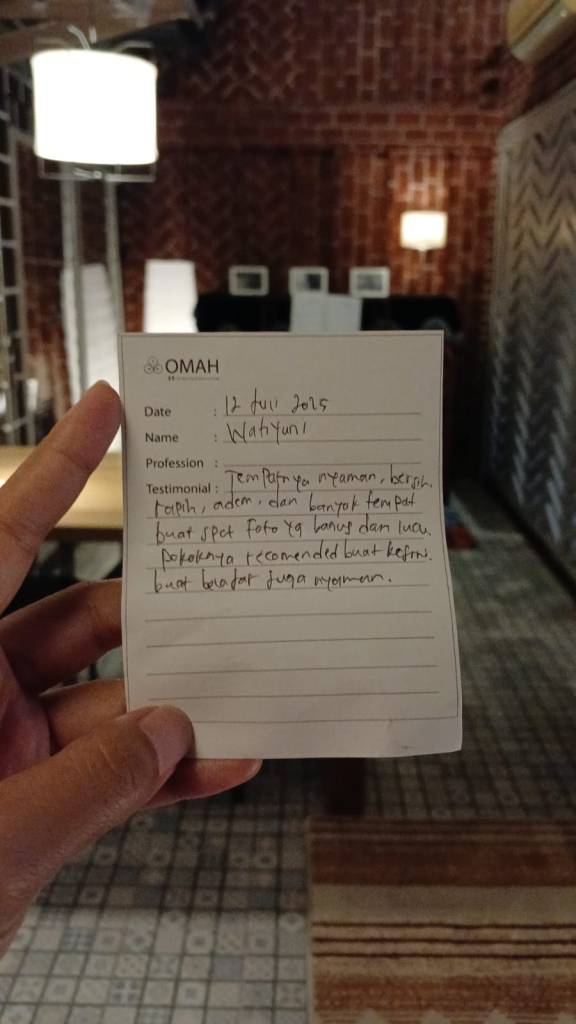 OMAH
Date : 12 Juli 2025
Name : Wahyuni
Profession :
Testimonial : Tempatnya nyaman, bersih,
rapih, adem, dan banyak tempat
buat spot foto yg bagus dan lucu.
pokoknya recomended buat kesini.
buat belajar juga nyaman.